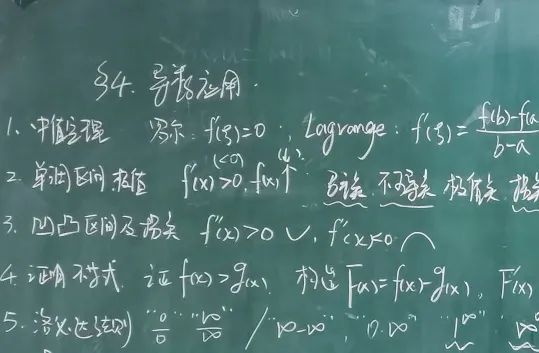 §4. 导数应用.
1. 中值定理 罗尔: f'(ξ)=0 ; Lagrange: f'(ξ) = \frac{f(b)-f(a}{b-a}
2. 单调区间 极值 f'(x)>0, f(x)↑ (<0) (↓) 驻点 不可导点 极值点 拐点
3. 凹凸区间及拐点 f''(x)>0 ∪, f''(x)<0 ⌒
4. 证明不等式. 证 f(x)>g(x), 构造 F(x)=f(x)-g(x), F'(x)
5. 洛必达法则 "\frac{0}{0}" "\frac{∞}{∞}" / "∞-∞", "0·∞" "1^∞" "∞